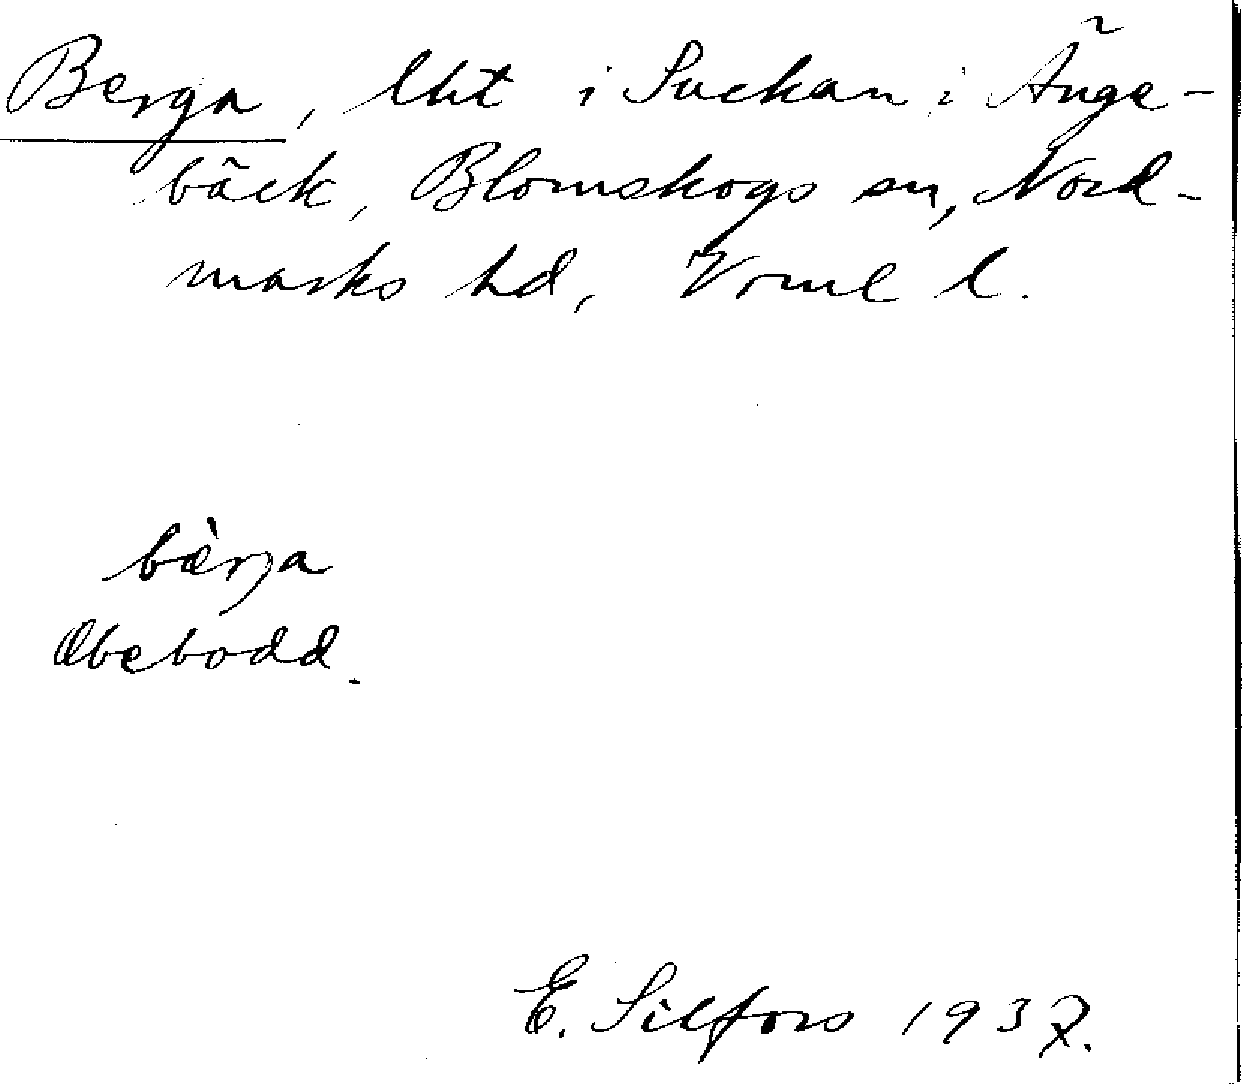 Berga, lht i Suckan i Änge-
bäck, Blomskogs sn, Nord-
marks hd, Vrml l.
bærja
Obebodd.
E. Silfors 1937.